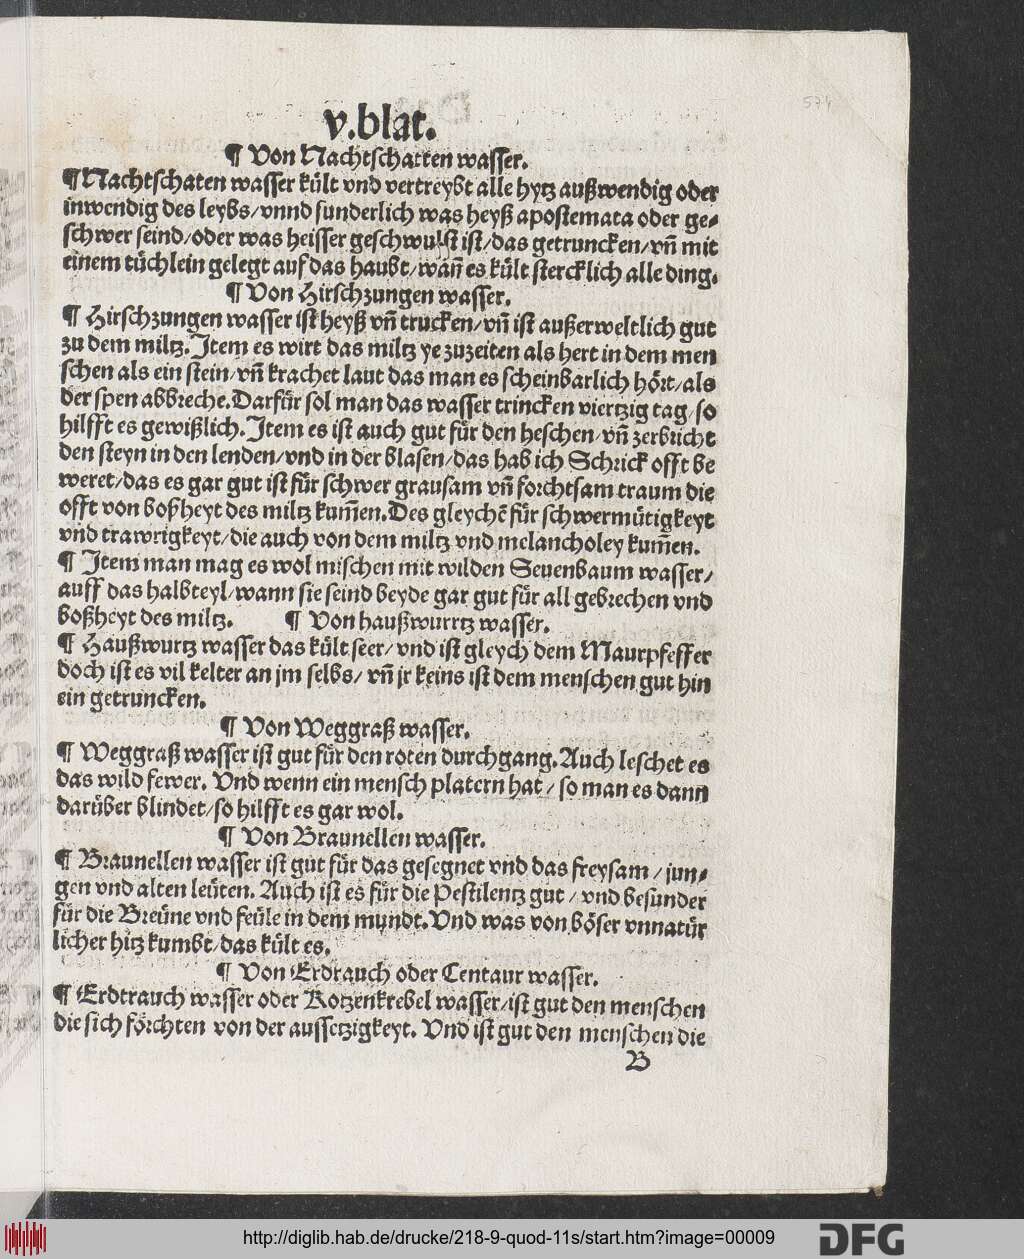 574
v.blat.
¶ Von Nachtschatten wasser.
¶ Nachtschaten wasser kült vnd vertreybt alle hytz außwendig oder
inwendig des leybs/vnnd sunderlich was heyß apostemata oder ge-
schwer seind/oder was heisser geschwulst ist/das getruncken/vn̄ mit
einem tüchlein gelegt auf das haubt/wan̄ es kült stercklich alle ding.
¶ Von Hirschzungen wasser.
¶ Hirschzungen wasser ist heyß vn̄ trucken/vn̄ ist außerweltlich gut
zu dem miltz. Item es wirt das miltz ye zuzeiten als hert in dem men
schen als ein stein/vn̄ krachet laut das man es scheinbarlich hört/als
der spen abbreche. Darfür sol man das wasser trincken viertzig tag/so
hilfft es gewißlich. Item es ist auch gut für den heschen/vn̄ zerbricht
den steyn in den lenden/vnd in der blasen/das hab ich Schrick offt be
weret/das es gar gut ist für schwer grausam vn̄ forchtsam traum die
offt von boßheyt des miltz kum̄en. Des gleychē für schwermütigkeyt
vnd trawrigkeyt/die auch von dem miltz vnd melancholey kum̄en.
¶ Item man mag es wol mischen mit wilden Seuenbaum wasser/
auff das halbteyl/wann sie seind beyde gar gut für all gebrechen vnd
boßheyt des miltz. ¶ Von haußwurrtz wasser.
¶ Haußwurtz wasser das kült seer/vnd ist gleych dem Maurpfeffer
doch ist es vil kelter an jm selbs/vn̄ jr keins ist dem menschen gut hin
ein getruncken.
¶ Von Weggraß wasser.
¶ Weggraß wasser ist gut für den roten durchgang. Auch leschet es
das wild fewer. Vnd wenn ein mensch platern hat/so man es dann
darüber blindet/so hilfft es gar wol.
¶ Von Braunellen wasser.
¶ Braunellen wasser ist gut für das gesegnet vnd das freysam/jun-
gen vnd alten leüten. Auch ist es für die Pestilentz gut/vnd besunder
für die Breüne vnd feüle in dem mundt. Vnd was von böser vnnatür
licher hitz kumbt/das kült es.
¶ Von Erdrauch oder Centaur wasser.
¶ Erdtrauch wasser oder Kotzenkrebel wasser/ist gut den menschen
die sich förchten von der aussetzigkeyt. Vnd ist gut den menschen die
B
http://diglib.hab.de/drucke/218-9-quod-11s/start.htm?image=00009
DFG